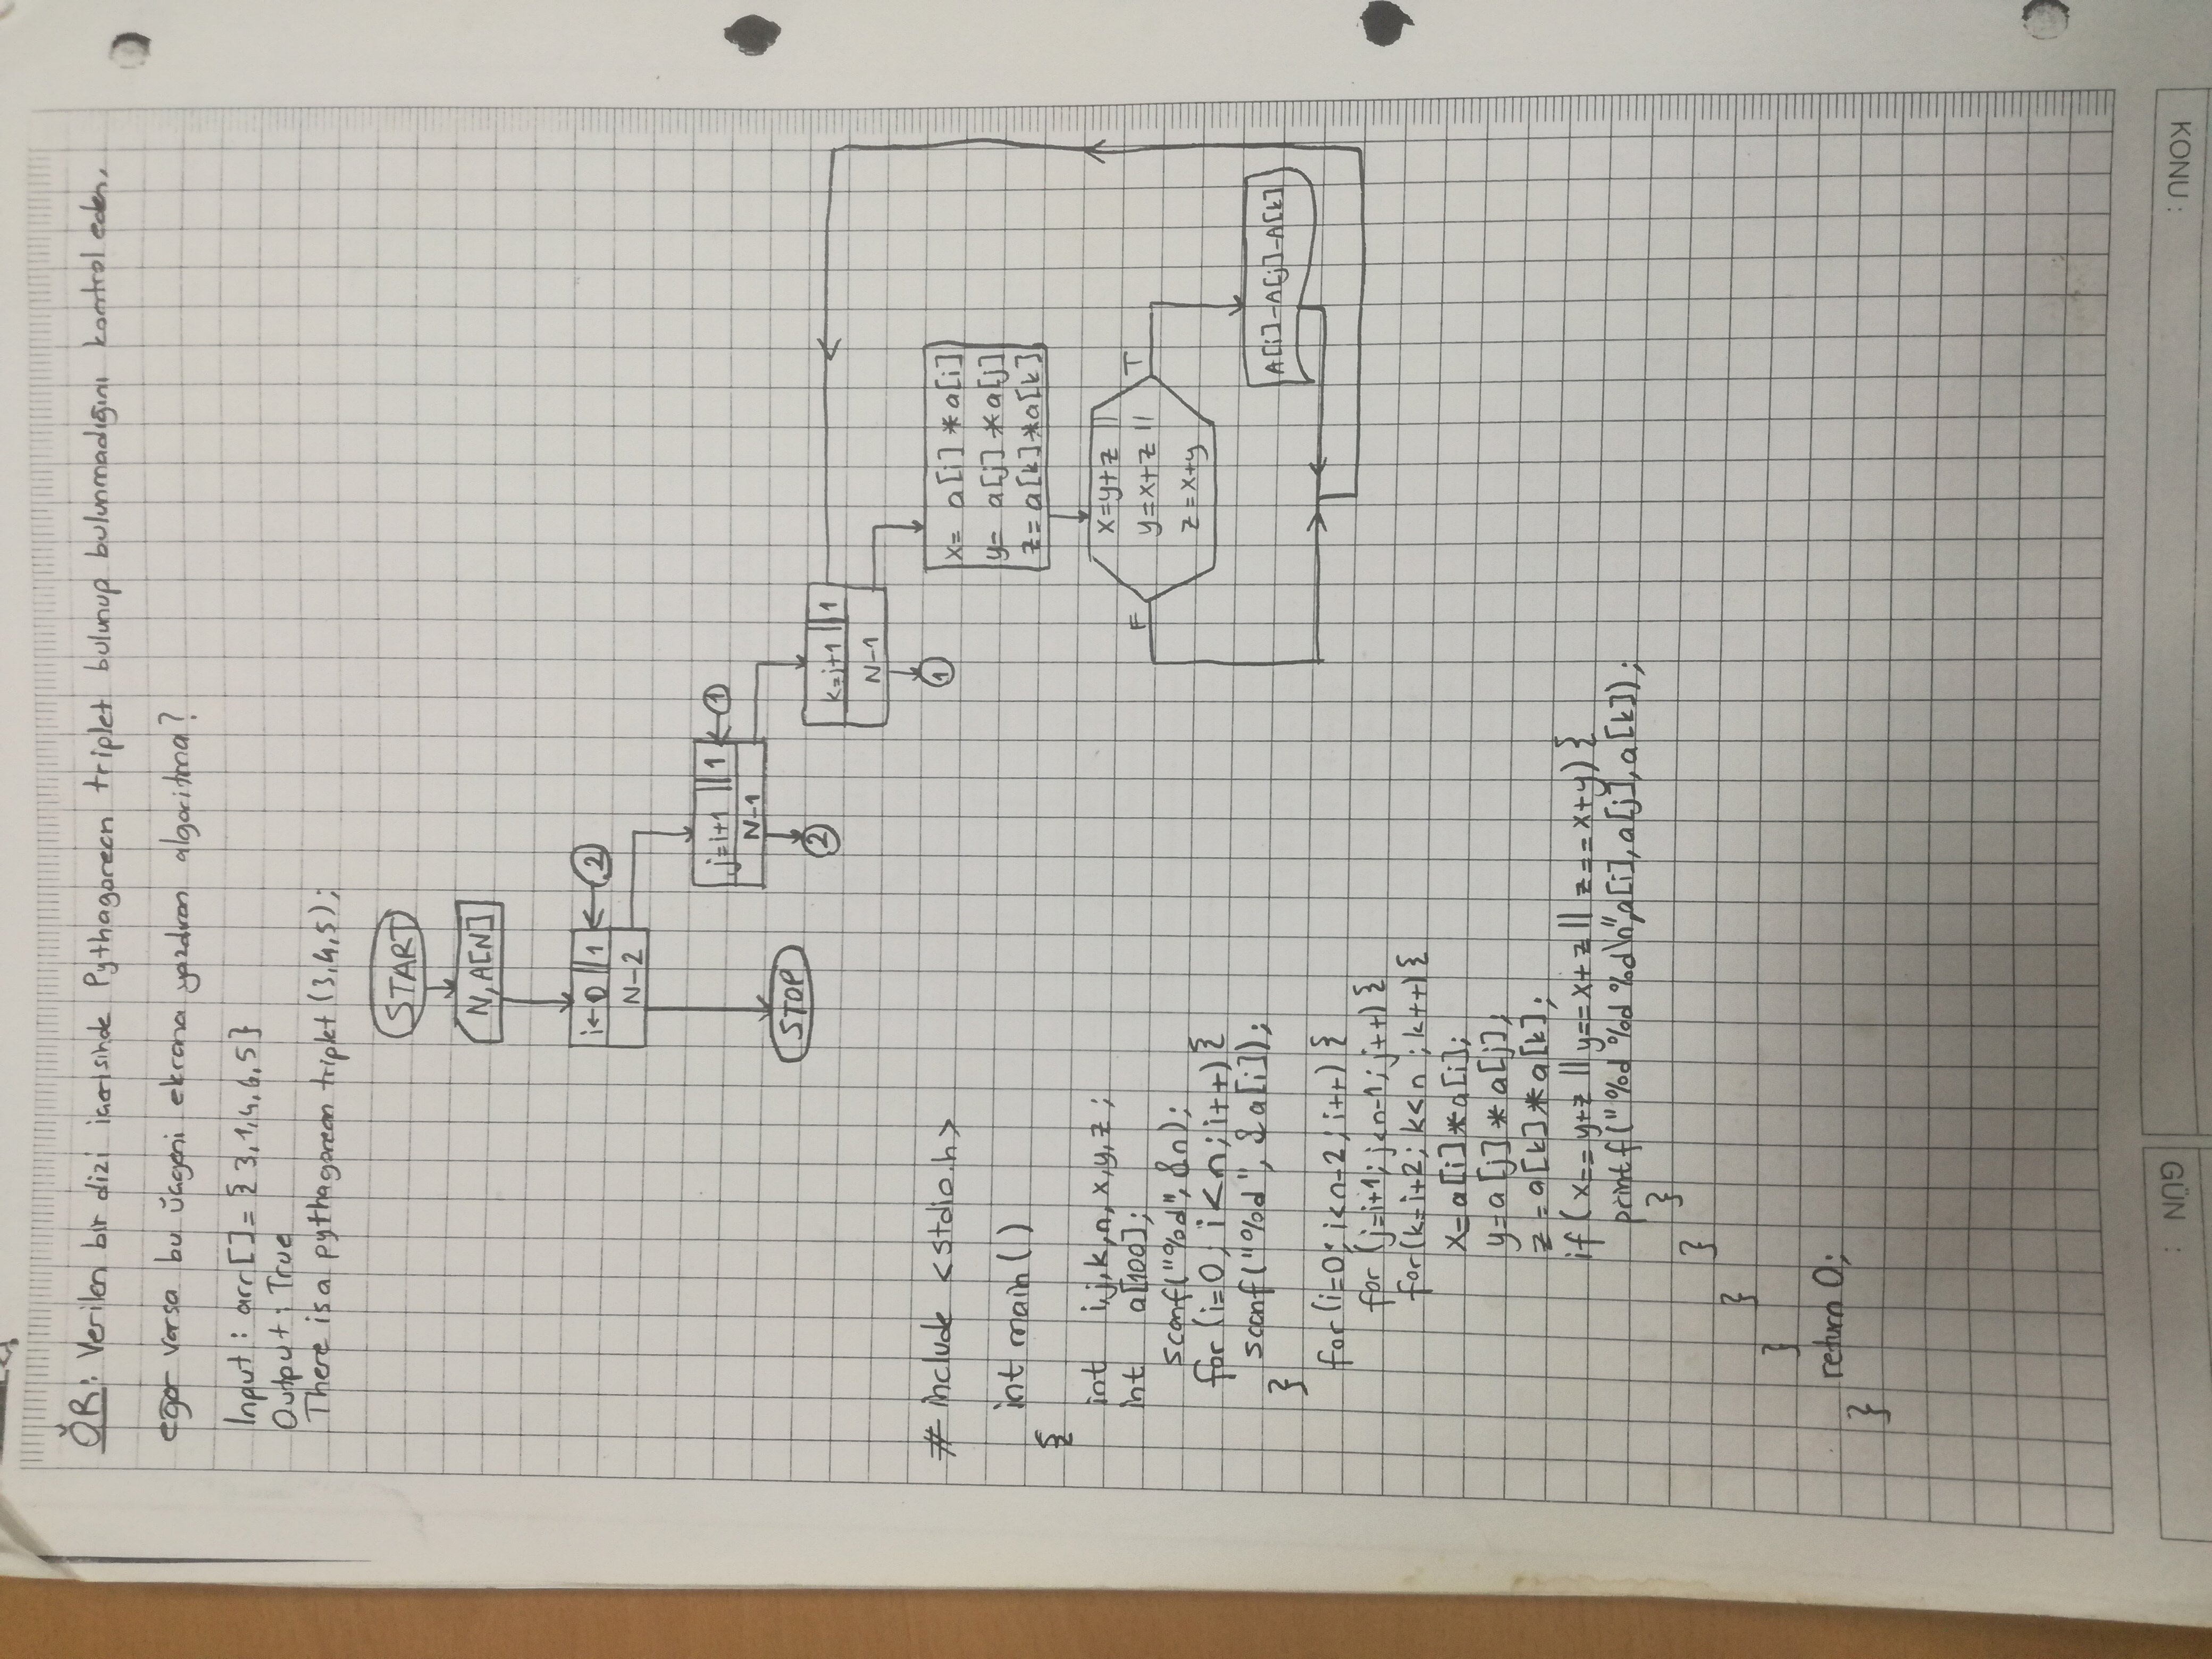 ÖR: Verilen bir dizi içerisinde Pythagorean triplet bulunup bulunmadığını kontrol eden,
eğer varsa bu üçgeni ekrana yazdıran algoritma?
Input: arr[] = {3,1,4,6,5}
Output: True
There is a pythagorean triplet (3,4,5);
START
N, A[N]
i←0 || 1
N-2
2
STOP
j=i+1 || 1
N-1
1
2
k=j+1 || 1
N-1
1
x= a[i]*a[i]
y= a[j]*a[j]
z= a[k]*a[k]
x=y+z ||
y=x+z ||
z=x+y
F
T
A[i]-A[j]-A[k]
# include <stdio.h>
int main()
{
int i,j,k,n,x,y,z;
int a[100];
scanf("%d",&n);
for (i=0; i<n; i++){
scanf("%d", &a[i]);
}
for (i=0; i<n-2; i++){
for (j=i+1; j<n-1; j++){
for(k=i+2; k<n; k++){
x=a[i]*a[i];
y=a[j]*a[j];
z=a[k]*a[k];
if (x==y+z || y==x+z || z==x+y){
printf("%d %d %d\n",a[i],a[j],a[k]);
}
}
}
}
return 0;
}
KONU :
GÜN :